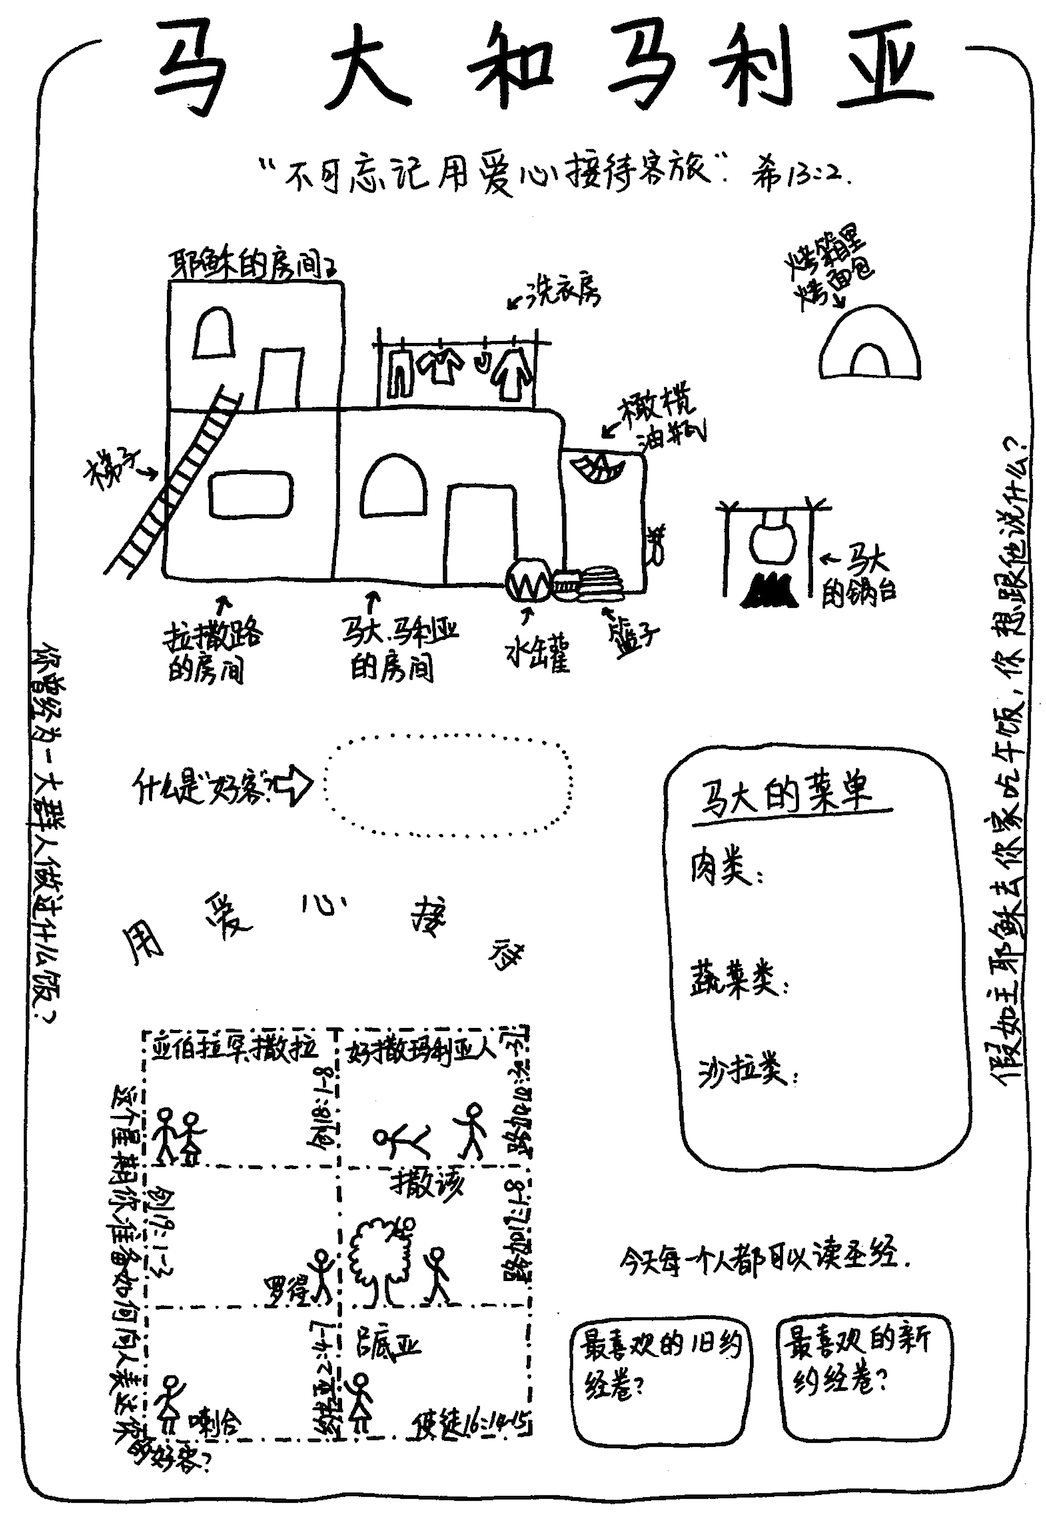 马大和马利亚
“不可忘记用爱心接待客旅”. 希13:2.
耶稣的房间
洗衣房
烤箱里
烤面包
橄榄
油瓶
梯子
马大
的锅台
拉撒路
的房间
马大.马利亚
的房间
水罐
篮子
你曾经为一大群人做过什么饭?
假如主耶稣去你家吃午饭,你想跟他说什么?
什么是“好客”?
马大的菜单
肉类:
蔬菜类:
沙拉类:
用爱心接待
亚伯拉罕.撒拉
创18:1-8
好撒玛利亚人
撒该
创19:1-3
罗得
喇合
吕底亚
使徒16:14-15
这个星期你准备如何向人表达你
的好客?
今天每一个人都可以读圣经.
最喜欢的旧约
经卷?
最喜欢的新
约经卷?